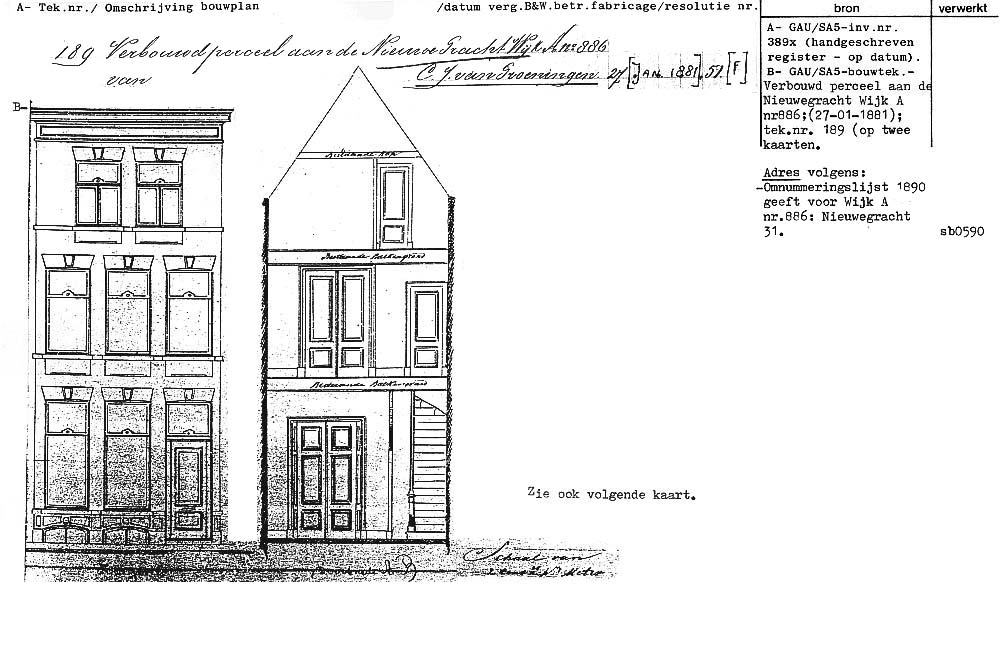 A- Tek.nr./ Omschrijving bouwplan /datum verg.B&W.betr.fabricage/resolutie nr. bron verwerkt
189 Verbouwd perceel aan de Nieuwe Gracht Wijk A no 886
van C. J. van Groeningen. 27 [JAN. 1881]. 51. [F]
A- GAU/SA5-inv.nr.
389x (handgeschreven
register - op datum).
B- GAU/SA5-bouwtek.-
Verbouwd perceel aan de
Nieuwegracht Wijk A
nr886;(27-01-1881);
tek.nr. 189 (op twee
kaarten.
Adres volgens:
-Omnummeringslijst 1890
geeft voor Wijk A
nr.886: Nieuwegracht
31. sb0590
B-
Bestaande kap
Bestaande Balkengrond
Bestaande Balkengrond
Zie ook volgende kaart.
Schaal van